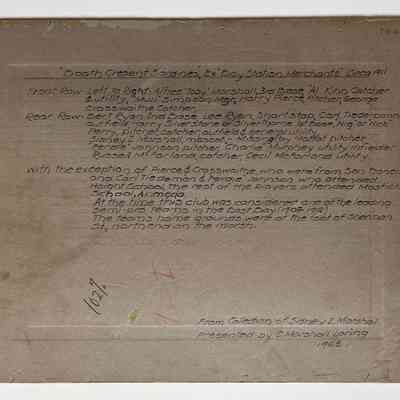 "Booth Cresent Sardines," Ex "Bay Station Merchants" Circa 1911
Front Row- Left To Right: Alfred "Toby" Marshall, 3rd Base, "Al" King Catcher
& utility, "Skull" Simpson Mgr, Harry Pierce, Pitcher, George
Crosswaithe Catcher.
Rear Row- Bert Ryan, 2nd Base, Lee Ryan, Shortstop, Carl Tiedemann
outfield Harry Silverstone or Silverthorne 1st Base, "Nig" or "Nick"
Perry, pitcher, catcher, outfield & general utility.
Sidney Z. Marshall, mascot -
"Fergie" Johnson pitcher, "Charlie" Murphey utility infielder
Russell McFarland, catcher, Cecil McFarland utility.
With the exception of Pierce & Crosswaithe, who were from San Francisco
and Carl Tiedeman & Fergie Johnson who attended
Haight School, the rest of the players attended Mastick
School, Alameda
At the time this club was considered one of the leading
semi-pro teams in the East Bay (1908-1911)
The teams home grounds were at the foot of
St., north end on the marsh.
1027
From Collection of Sidney Z. Marshall
Presented by D. Marshall Loring
1968